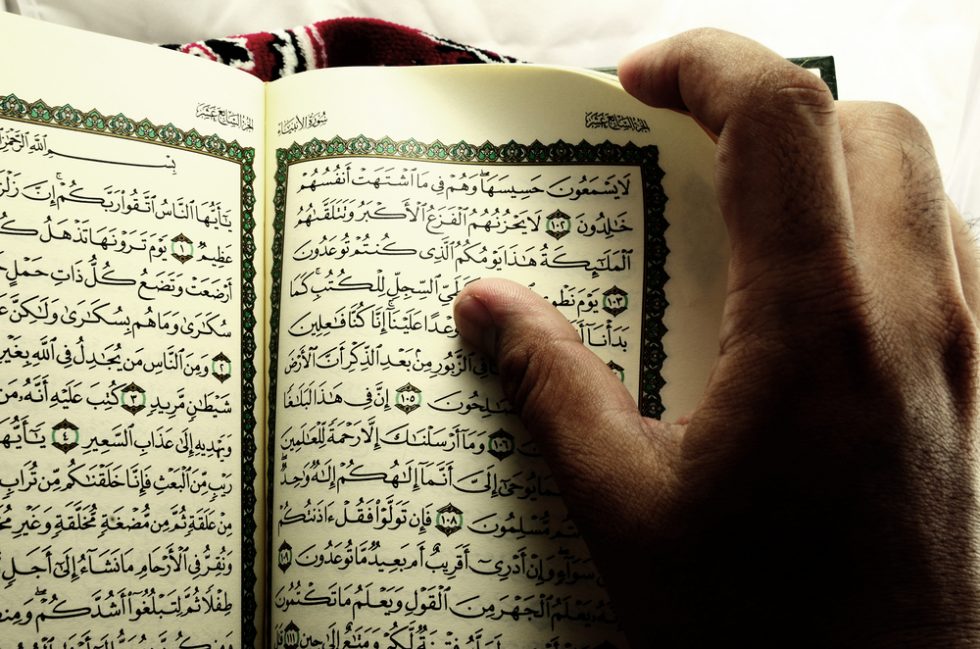 الجزء السابع عشر
سُورَةُ الأَنبِيَاء
لَا يَسْمَعُونَ حَسِيسَهَا ۖ وَهُمْ فِي مَا ٱشْتَهَتْ أَنفُسُهُمْ
خَٰلِدُونَ ١٠٢ لَا يَحْزُنُهُمُ ٱلْفَزَعُ ٱلْأَكْبَرُ وَتَتَلَقَّىٰهُمُ
ٱلْمَلَٰٓئِكَةُ هَٰذَا يَوْمُكُمُ ٱلَّذِي كُنتُمْ تُوعَدُونَ
١٠٣ يَوْمَ نَطْوِي ٱلسِّجِلِّ لِلْكُتُبِ ۚ كَمَا
بَدَأْنَآ وَعْدًا عَلَيْنَآ ۚ إِنَّا كُنَّا فَٰعِلِينَ
فِي ٱلزَّبُورِ مِنۢ بَعْدِ ٱلذِّكْرِ أَنَّ ٱلْأَرْضَ
ٱلصَّٰلِحُونَ ١٠٥ إِنَّ فِي هَٰذَا لَبَلَٰغًا
١٠٦ وَمَآ أَرْسَلْنَٰكَ إِلَّا رَحْمَةً لِّلْعَٰلَمِينَ
يُوحَىٰٓ إِلَيَّ أَنَّمَآ إِلَٰهُكُمْ إِلَٰهٌ وَٰحِدٌ ۖ
مُّسْلِمُونَ ١٠٨ فَإِن تَوَلَّوْا۟ فَقُلْ ءَاذَنتُكُمْ
سَوَآءٍ ۖ وَإِنْ أَدْرِيٓ أَقَرِيبٌ أَم بَعِيدٌ مَّا تُوعَدُونَ ١٠٩
يَعْلَمُ ٱلْجَهْرَ مِنَ ٱلْقَوْلِ وَيَعْلَمُ مَا تَكْتُمُونَ
فِتْنَةٌ لَّكُمْ وَمَتَٰعٌ إِلَىٰ حِينٍ ١١١
الجزء السابع عشر
بِسْمِ ٱللَّهِ ٱلرَّحْمَٰنِ
يَٰٓأَيُّهَا ٱلنَّاسُ ٱتَّقُوا۟ رَبَّكُمْ ۚ إِنَّ
عَظِيمٌ ١ يَوْمَ تَرَوْنَهَا تَذْهَلُ
أَرْضَعَتْ وَتَضَعُ كُلُّ ذَاتِ حَمْلٍ
سُكَٰرَىٰ وَمَا هُم بِسُكَٰرَىٰ وَلَٰكِنَّ
٢ وَمِنَ ٱلنَّاسِ مَن يُجَٰدِلُ فِي ٱللَّهِ بِغَيْرِ
شَيْطَٰنٍ مَّرِيدٍ ٣ كُتِبَ عَلَيْهِ أَنَّهُۥ مَن
وَيَهْدِيهِ إِلَىٰ عَذَابِ ٱلسَّعِيرِ ٤ يَٰٓأَيُّهَا
رَيْبٍ مِّنَ ٱلْبَعْثِ فَإِنَّا خَلَقْنَٰكُم مِّن تُرَابٍ
مِنْ عَلَقَةٍ ثُمَّ مِن مُّضْغَةٍ مُّخَلَّقَةٍ وَغَيْرِ
وَنُقِرُّ فِي ٱلْأَرْحَامِ مَا نَشَآءُ إِلَىٰٓ أَجَلٍ
طِفْلًا ثُمَّ لِتَبْلُغُوٓا۟ أَشُدَّكُمْ ۖ